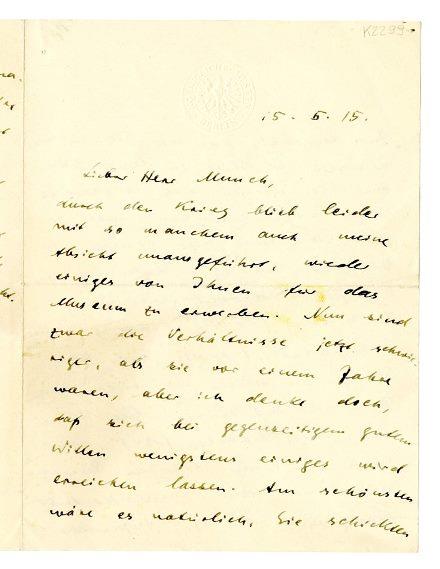 K2299
15. 5. 15.
Lieber Herr Munch,
durch den Krieg blieb leider
mit so manchem auch meine
Absicht unausgeführt, wieder
einiges von Ihnen für das
Museum zu erwerben. Nun sind
zwar die Verhältnisse jetzt schwie-
riger, als sie vor einem Jahre
waren, aber ich denke doch,
daß sich bei gegenseitigem guten
Willen wenigstens einiges wird
erreichen lassen. Am schönsten
wäre es natürlich, Sie schickten